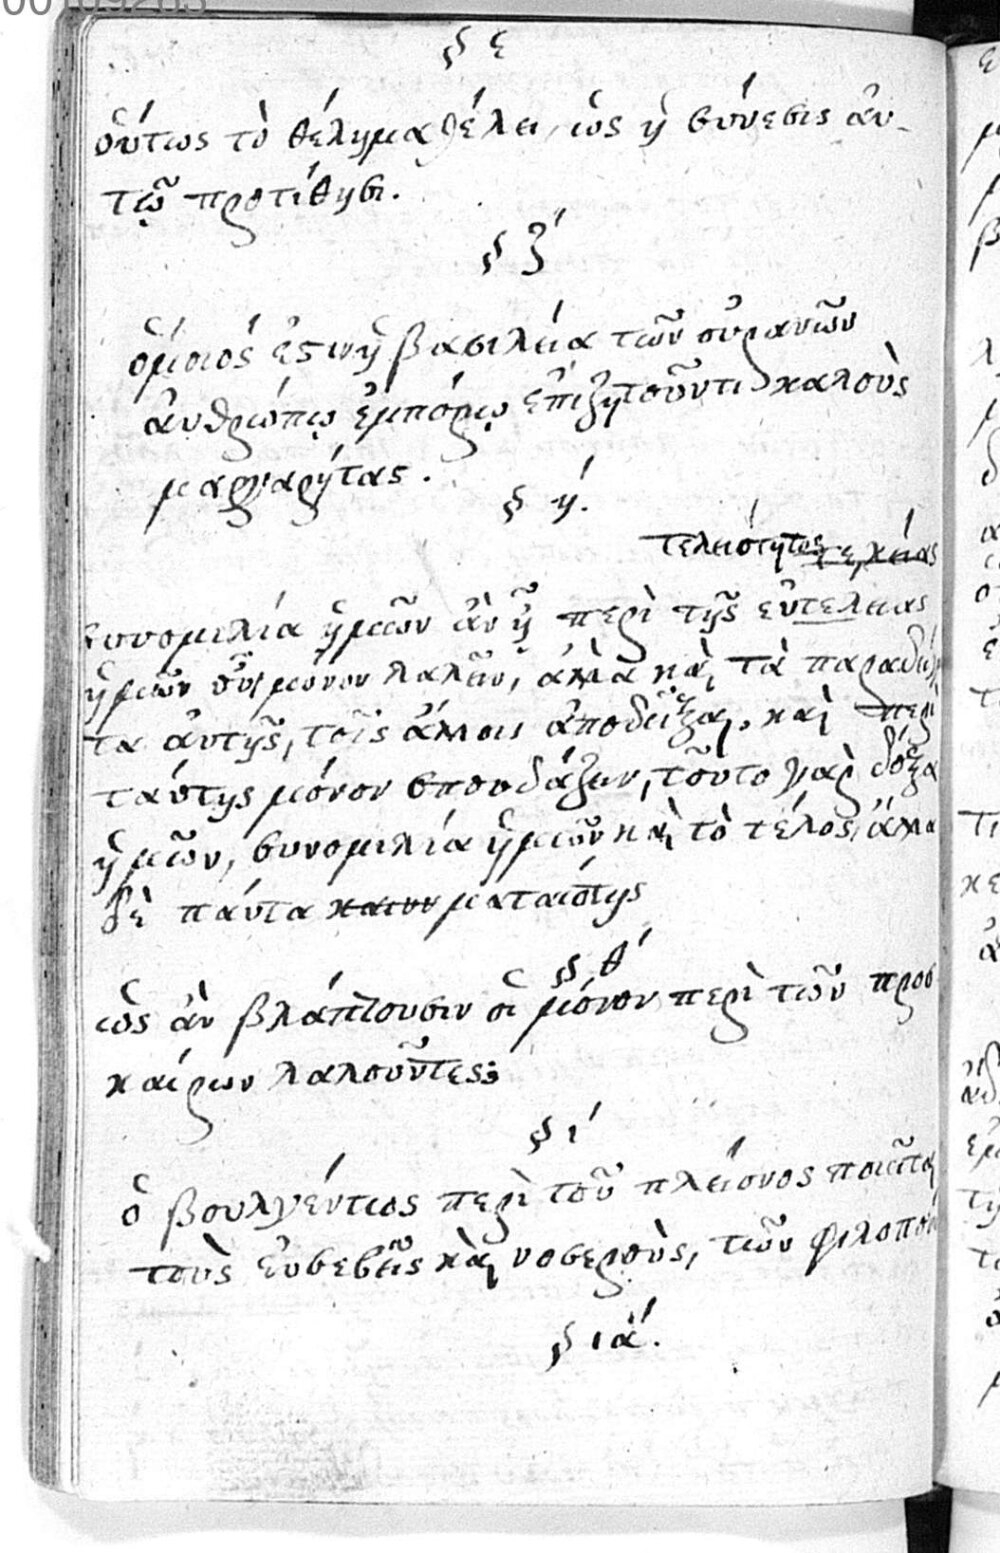 § ς
ὁύτως τὸ θέλημα θέλει, ὡς ἡ σύνεσις ἀυ-
τῷ προτίθησι.
§ ζ'
ὁμοιός ἐστιν ἡ βασιλεία τῶν οὐρανῶν
ἀνθρώπῳ ἐμπόρῳ ἐπιζητοῦντι καλοὺς
μαργαρήτας.
§ ή.
τελειότητος
συνομιλία ἡμῶν ἂν ᾖ περὶ τῆς εὐτελειας
ἡμῶν οὐ μόνον λαλεῖν, ἀλλα καὶ τὰ
τα ἀυτῆς, τοῖς ἄλλοις ἀποδεῖξαι. καὶ περὶ
ταύτης μόνον σπουδάζειν, τοῦτο γὰρ δόξα
ἡμῶν, συνομιλία ἡμῶν καὶ τὸ τέλος, ἄλλα
δὲ πάντα ματαιότης
§ θ'
ὡς ἂν βλάπτουσιν οἱ μόνον περὶ τῶν προσ
καίρων λαλοῦντες;
§ ι'
ὁ περὶ τοῦ πλείονος ποιεῖται
τοὺς ἐυσεβεῖς καὶ νοσεροὺς, τῶν
§ ιά.
00109283